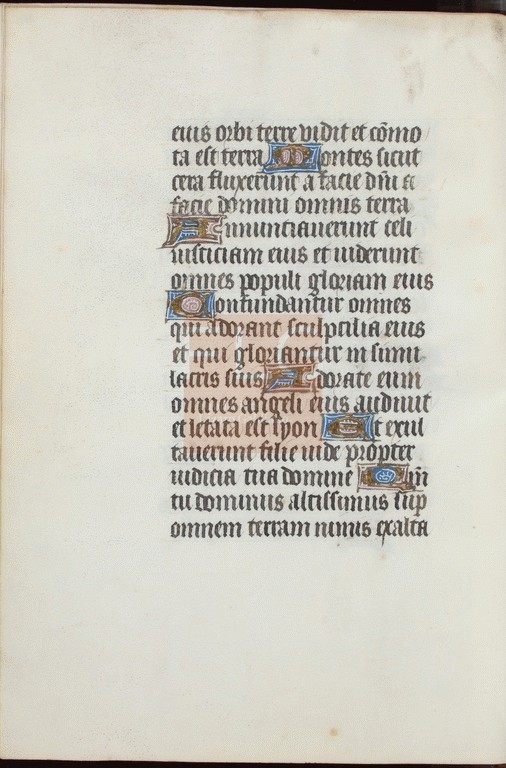 eius orbi terre vidit et cōmo
ta est terra Montes sicut
cera fluxerunt a facie dn̄i a
facie domini omnis terra
Annunciauerunt celi
iusticiam eius et uiderunt
omnes populi gloriam eius
Confundantur omnes
qui adorant sculptilia eius
et qui gloriantur in simu
lacris suis Adorate eum
omnes angeli eius audiuit
et letata est syon Et exul
tauerunt filie iude propter
iudicia tua domine Qm̄
tu dominus altissimus sup
omnem terram nimis exalta